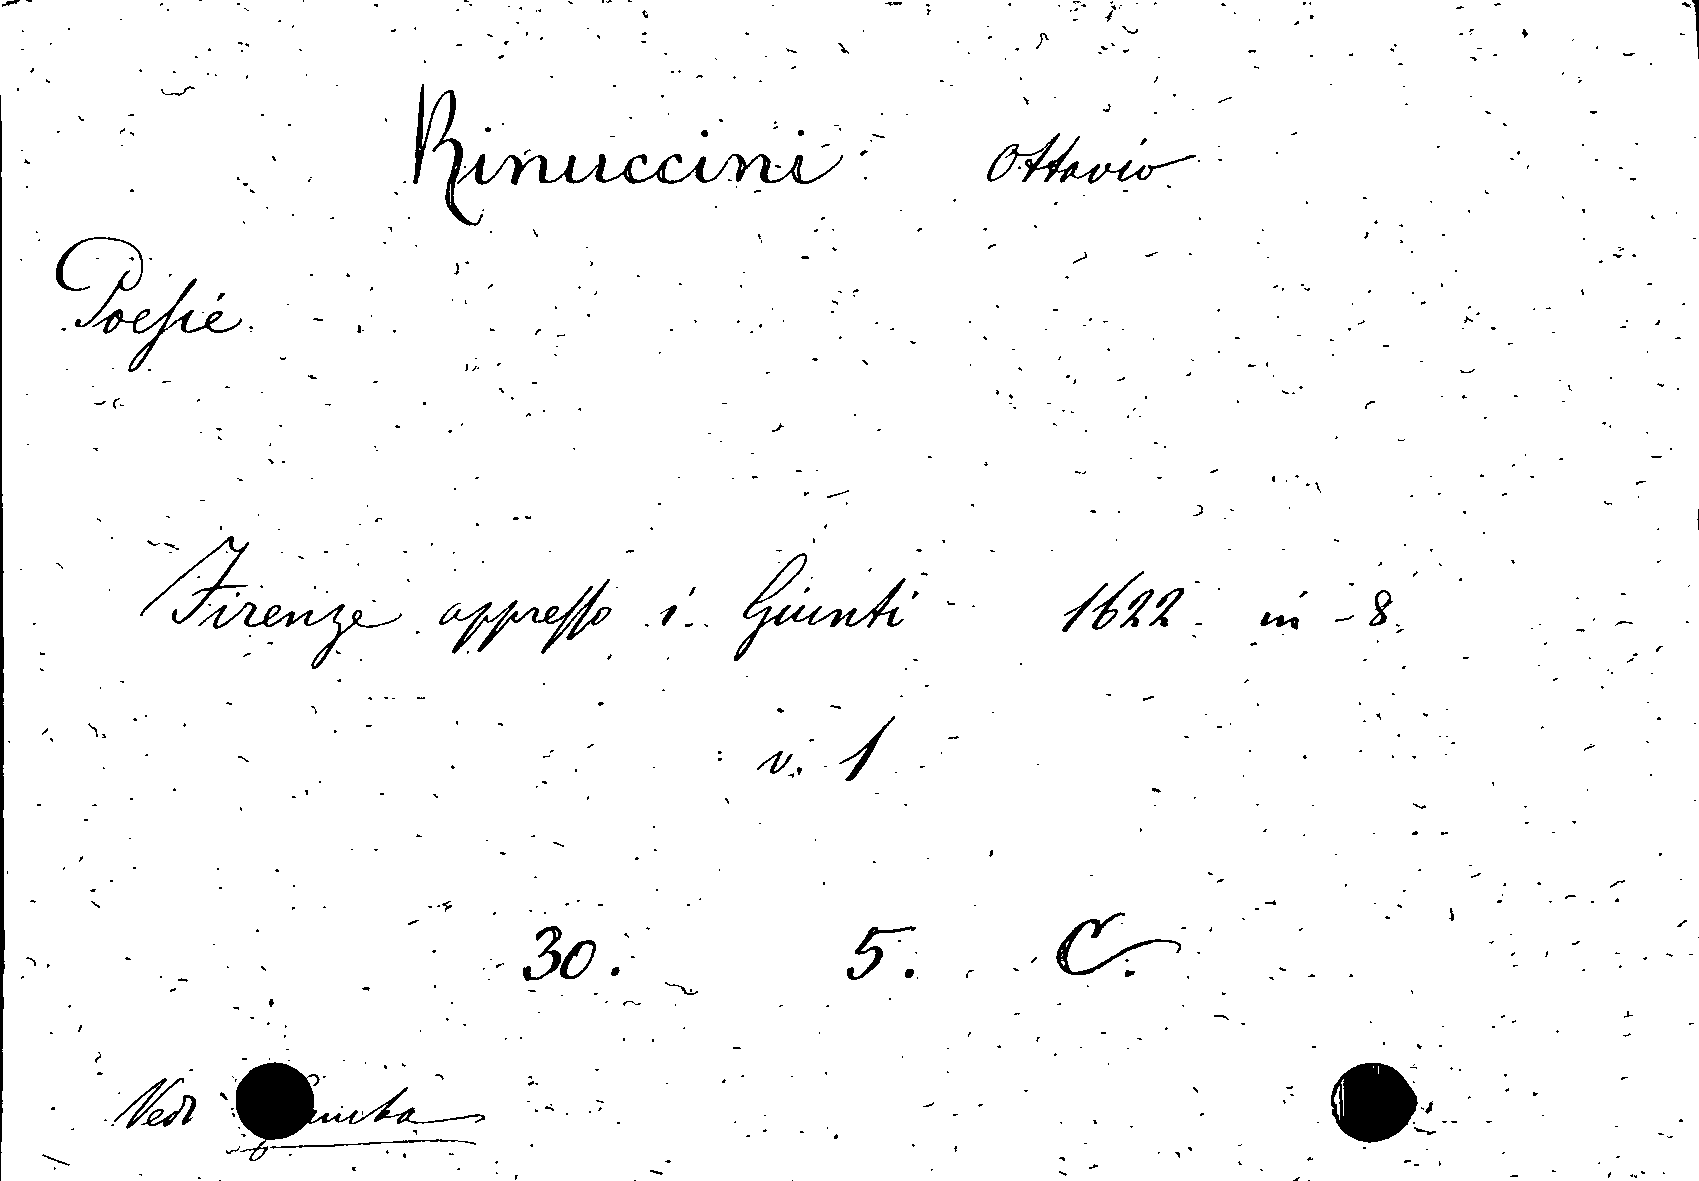 Rinuccini Ottavio
Poesie
Firenze appresso i Giunti 1622 in-8.
v. 1
30. 5. C.
Vedi